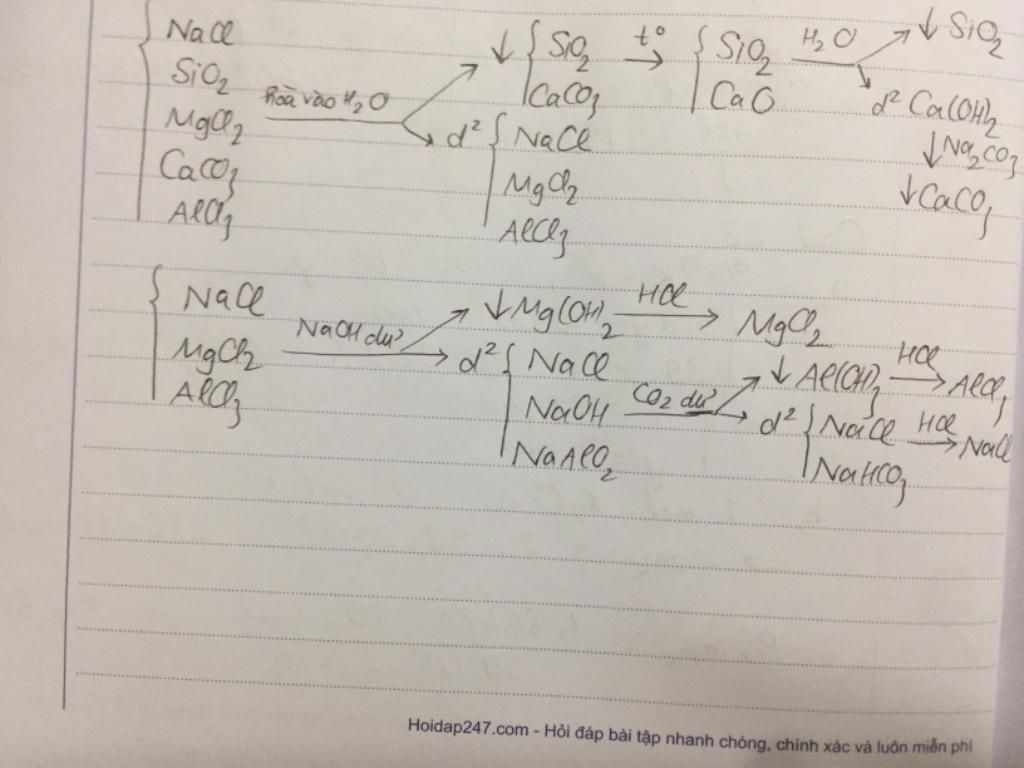 NaCl
SiO2
MgCl2
CaCO3
AlCl3
Hoà vào H2O
↓ SiO2
CaCO3
t°
SiO2
CaO
H2O
↓ SiO2
d² Ca(OH)2
↓ Na2CO3
↓ CaCO3
d² NaCl
MgCl2
AlCl3
NaCl
MgCl2
AlCl3
NaOH dư
↓ Mg(OH)2
HCl
MgCl2
d² NaCl
NaOH
NaAlO2
CO2 dư
↓ Al(OH)3
HCl
AlCl3
d² NaCl
NaHCO3
HCl
NaCl
Hoidap247.com - Hỏi đáp bài tập nhanh chóng, chính xác và luôn miễn phí